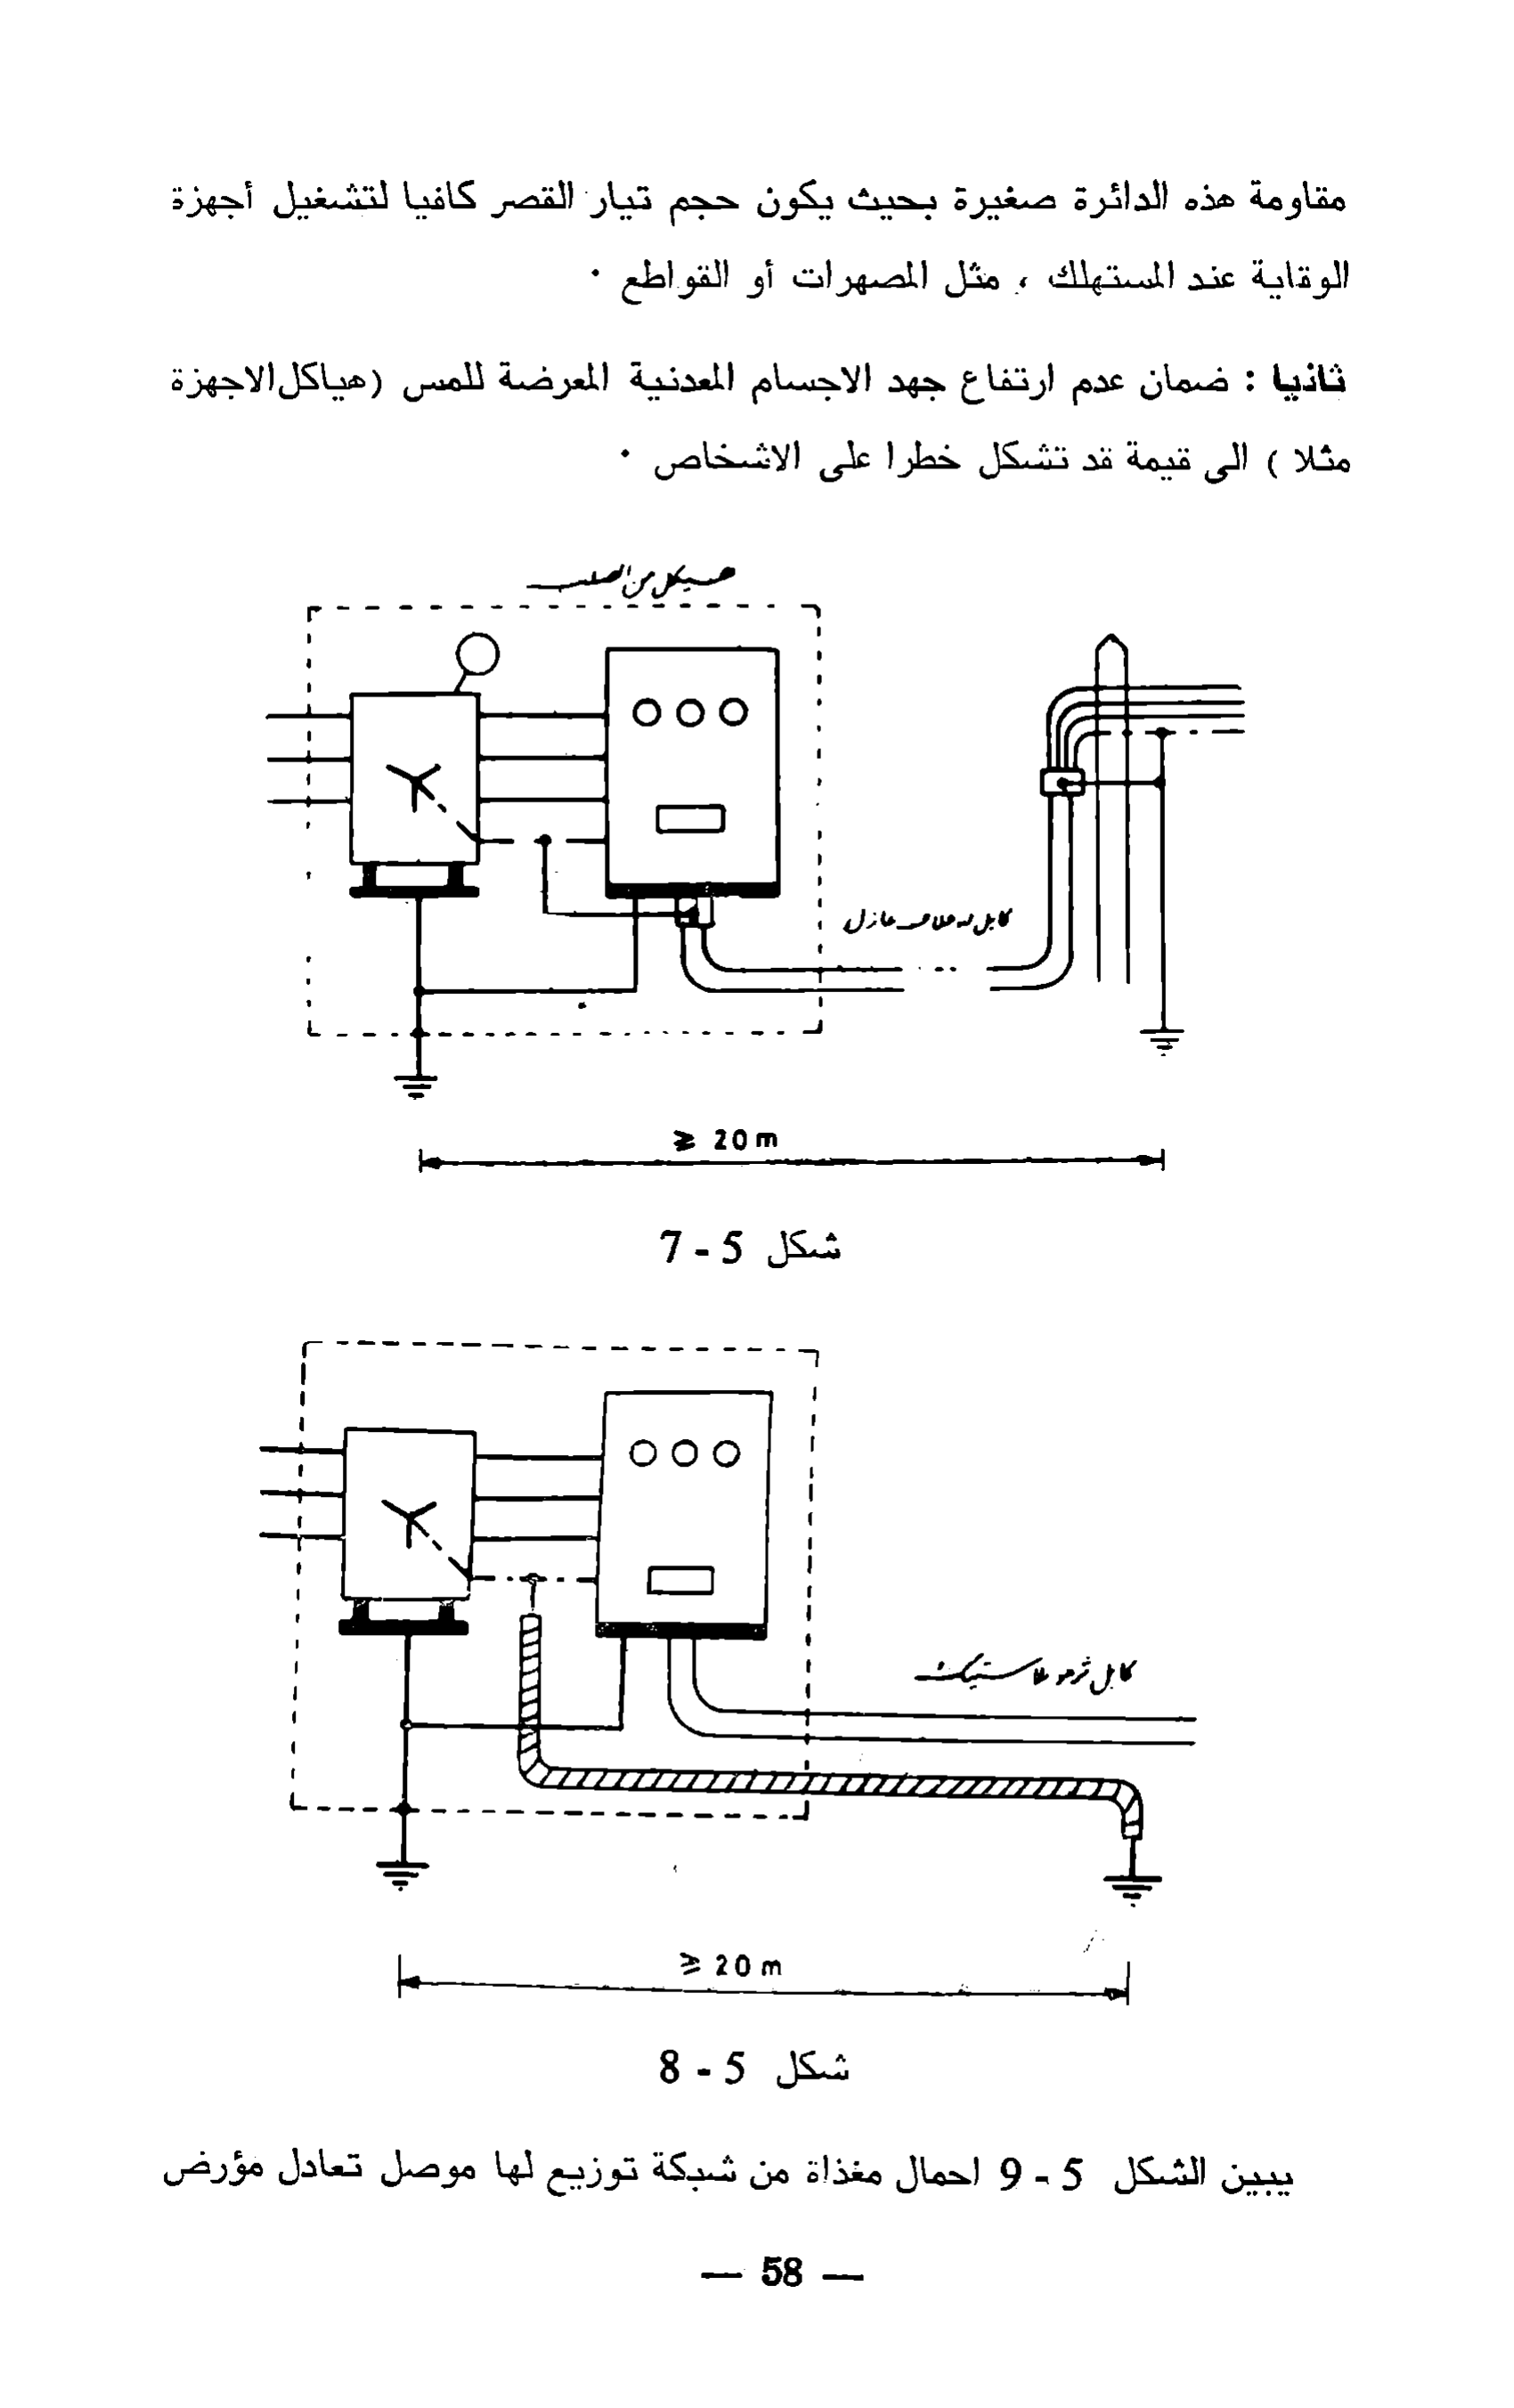 مقاومة هذه الدائرة صغيرة بحيث يكون حجم تيار القصر كافيا لتشغيل أجهزة
الوقاية عند المستهلك ، مثل المصهرات أو القواطع ·
ثانيا : ضمان عدم ارتفاع جهد الاجسام المعدنية المعرضة للمس (هياكل الاجهزة
مثلا ) الى قيمة قد تشكل خطرا على الاشخاص ·
هيكل من الصلب
كابل له غلاف عازل
≥ 20 m
شكل 5 - 7
كابل ثرموبلاستيك
≥ 20 m
شكل 5 - 8
يبين الشكل 5 - 9 احمال مغذاة من شبكة توزيع لها موصل تعادل مؤرض
— 58 —